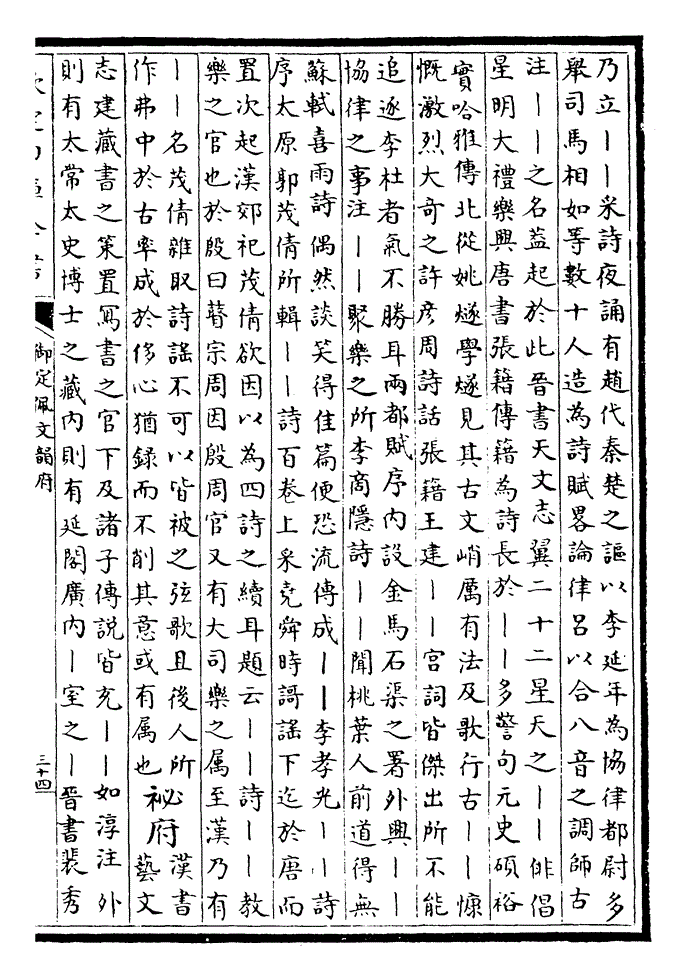 乃立——采詩夜誦有趙代秦楚之謳以李延年為協律都尉多
舉司馬相如等數十人造為詩賦畧論律呂以合八音之調師古
注——之名葢起於此晉書天文志翼二十二星天之——俳倡
星明大禮樂興唐書張籍傳籍為詩長於——多警句元史碩裕
實哈雅傳北從姚燧學燧見其古文峭厲有法及歌行古——慷
慨激烈大奇之許彦周詩話張籍王建——宮詞皆傑出所不能
追逐李杜者氣不勝耳兩都賦序内設金馬石渠之署外興——
協律之事注——聚樂之所李商隱詩——聞桃葉人前道得無
蘇軾喜雨詩偶然談笑得佳篇便恐流傳成——李孝光——詩
序太原郭茂倩所輯——詩百卷上采堯舜時謌謠下迄於唐而
置次起漢郊祀茂倩欲因以為四詩之續耳題云——詩——教
樂之官也於殷曰瞽宗周因殷周官又有大司樂之属至漢乃有
——名茂倩雜取詩謠不可以皆被之弦歌且後人所
作弗中於古率成於侈心猶録而不削其意或有属也
祕府
漢書
藝文
志建藏書之策置寫書之官下及諸子傳説皆充——如淳注外
則有太常太史博士之藏内則有延閣廣内—室之—晉書裴秀
御定佩文韻府
三十四